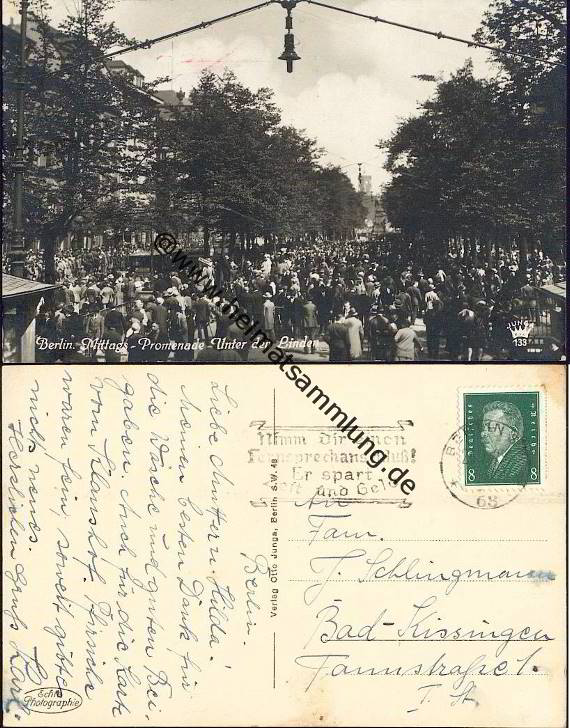 Berlin. Mittags - Promenade Unter der Linden
JUNGA
133
www.heimatsammlung.de
Liebe Mutter u. Hilda!
Meinen besten Dank für
die Wäsche und guten Bei-
gaben. Auch für die Karte
vom
waren fein, soweit
nichts neues.
Herzlichen Gruß Karl.
Berlin.
Echte
Photographie
Verlag Otto Junga, Berlin S.W. 48
Nimm Dir einen
Fernsprechanschluß!
Er spart
Zeit und Geld
BERLIN
68
Deutsches Reich
8 8
An
Fam.
J. Schlingmann
Bad-Kissingen
Tannstraße 1.
I. St.